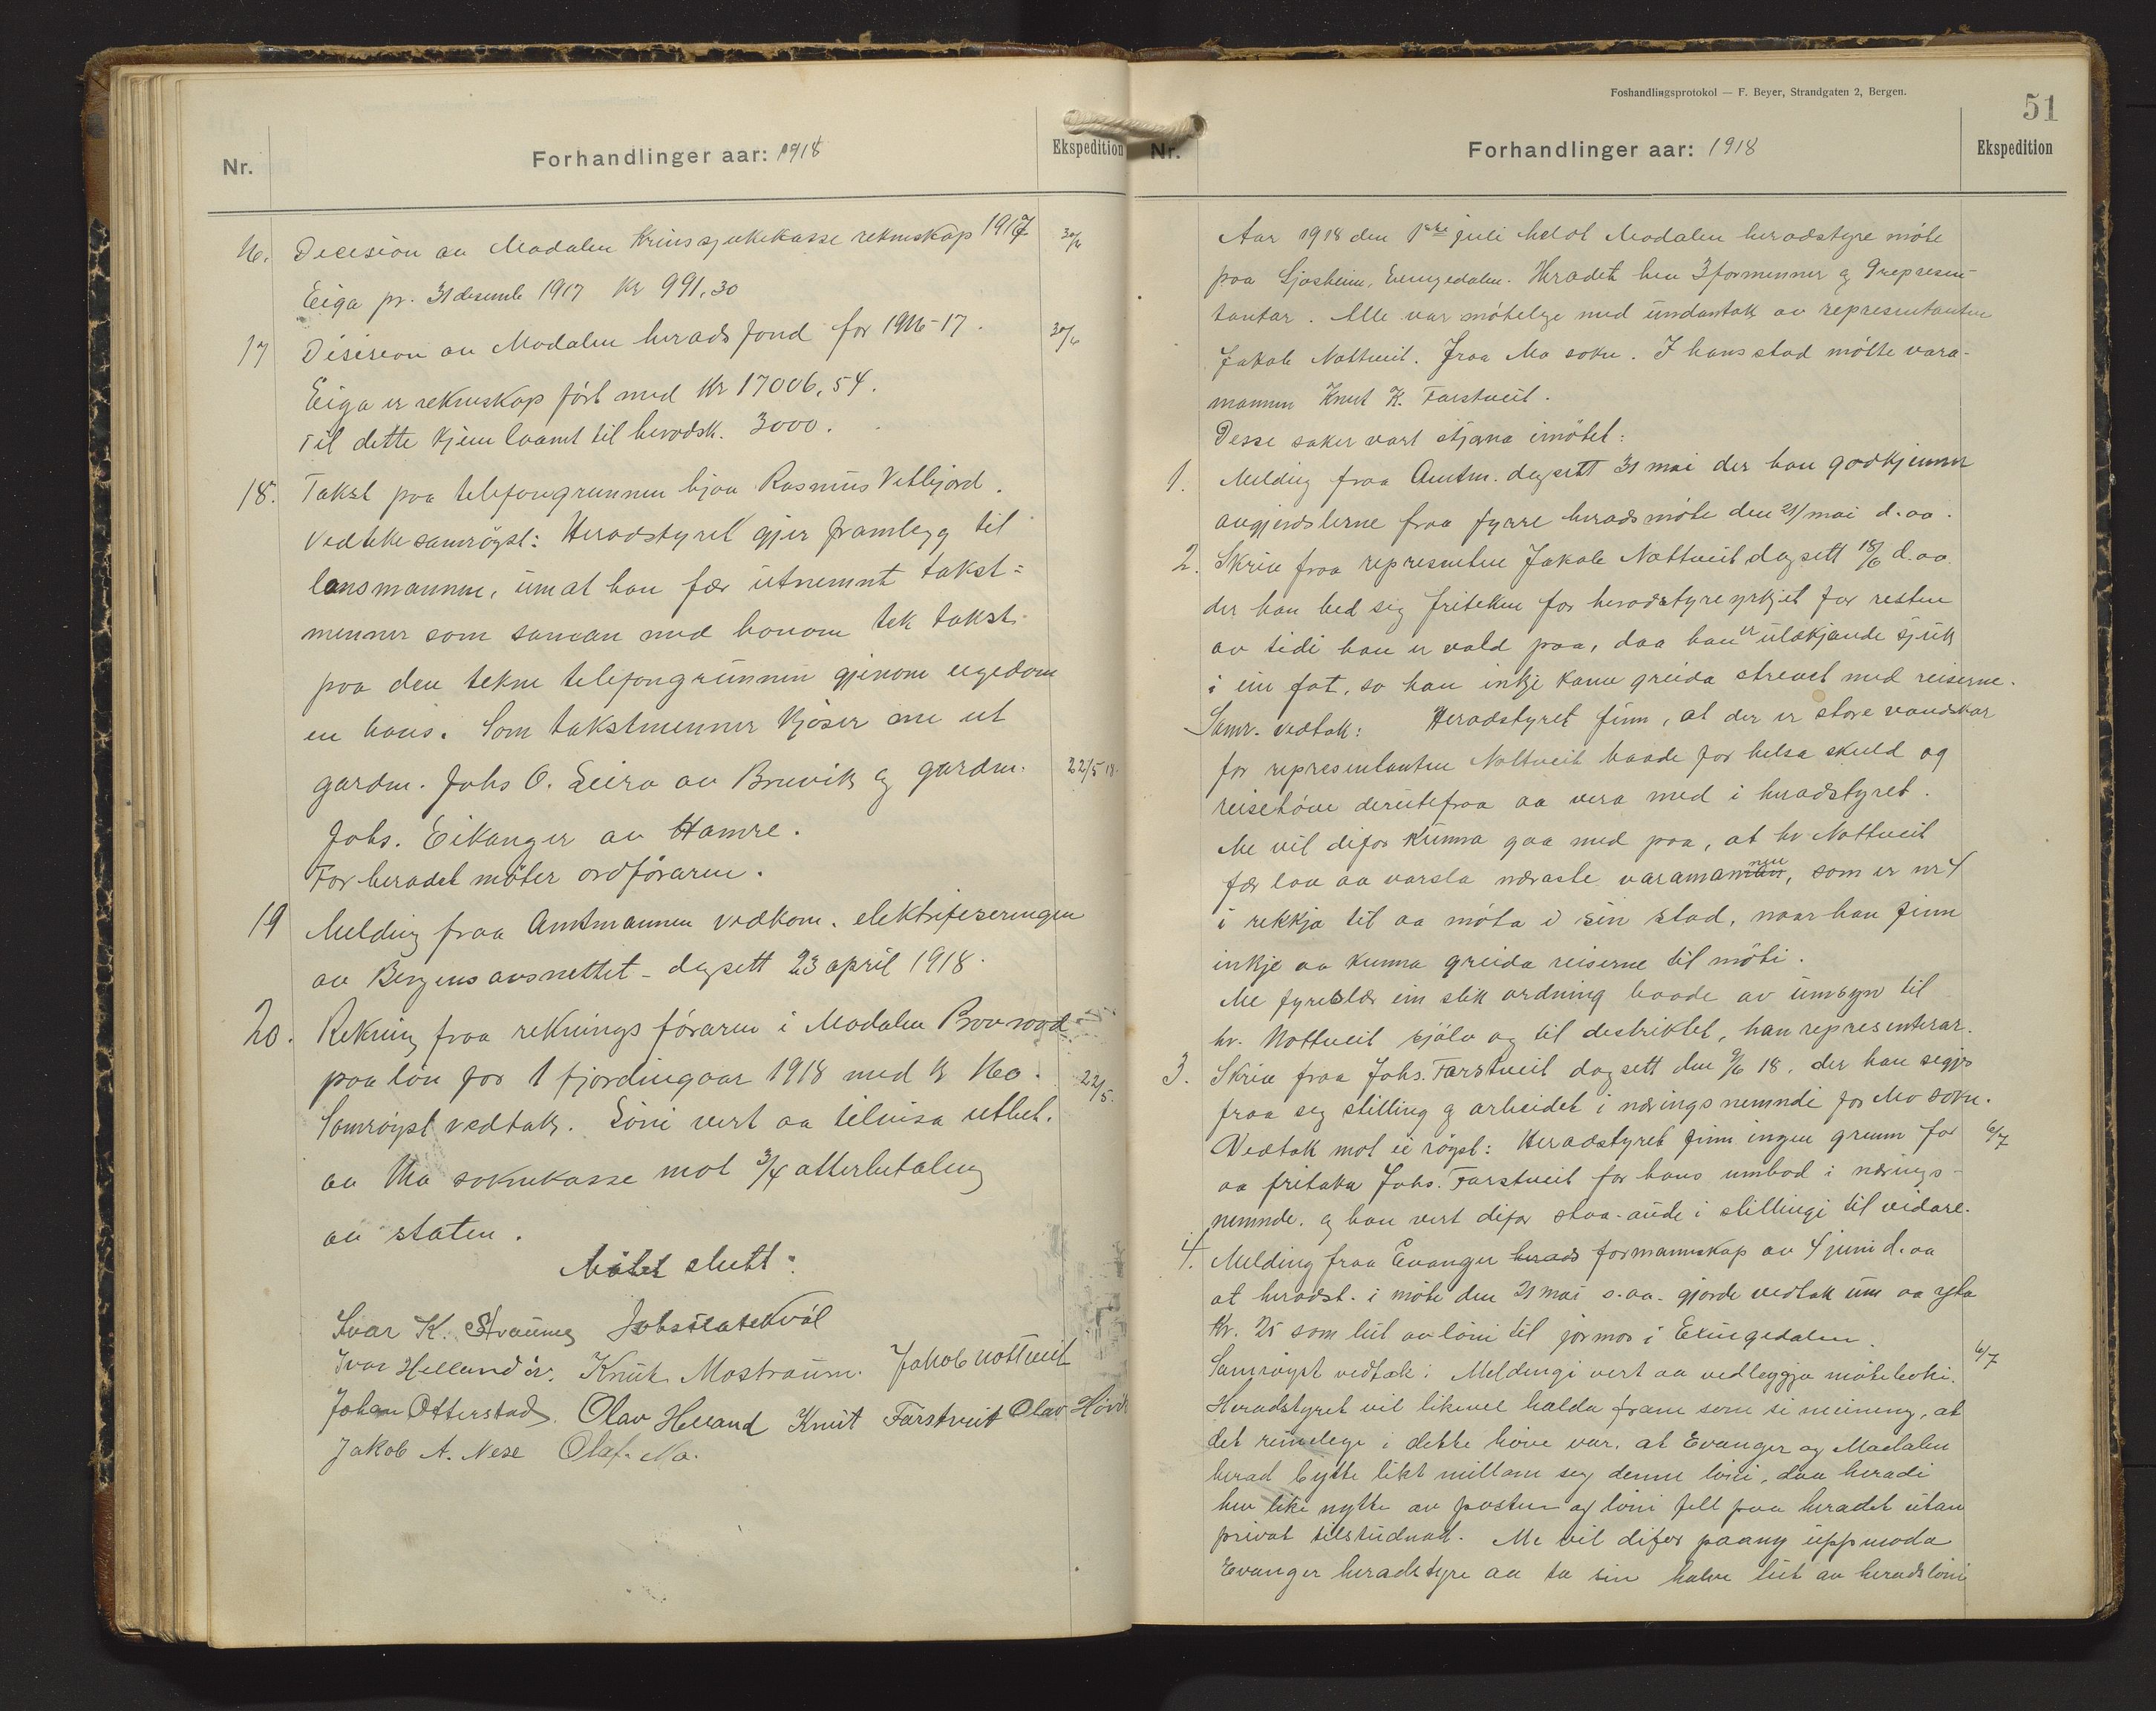 Nr.
Forhandlinger aar: 1918
Ekspedition
16. Decision av Modalen Krinssjukekasse rekneskap 1917 30/6
Eiga pr. 31 desemb 1917 Kr 991,30
17 Disision av Modalen herads fond for 1916-17. 30/6
Eiga er rekneskap fört med Kr 17006,54.
Til dette kjem laant til heradsk. 3000.
18. Takst paa telefongrunnen hjaa Rasmus Vetlejord.
Vedteke samröyst: Heradstyret gjer framlegg til
lensmannen, um at han fær utnemnt takst=
menner som saman med honom tek takst
paa den tekne telefongrunnen gjenom eigedom
en hans. Som takstmenner kjöser me ut
gardm. Johs O. Leira av Bruvik og gardm. 22/5 18.
Johs. Eikanger av Hamre.
For heradet möter ordföraren.
19 Melding fraa Amtmannen vedkom. elektrifiseringen
av Bergens avsnettet - dagsett 23 april 1918.
20. Rekning fraa reknings föraren i Modalen Brovord
paa lön for 1 fjordingaar 1918 med Kr 160. 22/5.
Samröyst vedtak. Löni vert aa tilvisa utbet.
av Mo soknekasse mot 3/4 atterbetaling
av staten.
Mötet slutt:
Ivar K. Straume Johs
Ivar Helland sr. Knut Mostraum. Jakob Nottveit
Johan Otterstad. Olav Helland Knut Farstveit Olav Hövik
Jakob A. Nese Olaf. Mo.
Foshandlingsprotokol — F. Beyer, Strandgaten 2, Bergen.
51
Nr.
Forhandlinger aar: 1918
Ekspedition
Aar 1918 den 1ste juli heldt Modalen heradstyre möte
paa Sjosheim, Eksingedalen. Heradet hev 3 formenner og 9 represen-
tantar. Alle var mötelyge med undantak av representanten
Jakob Nottveit. fraa Mo sokn. I hans stad mötte vara-
mannen Knut K. Farstveit.
Desse saker vart stjana i mötet:
1. Melding fraa Amtm. dagsett 31 mai der han godkjenner
avgjerdslerne fraa fyrre heradsmöte den 21/ mai d.aa.
2. Skriv fraa represnten Jakob Nottveit dagsett 18/6 d.aa.
der han bed seg friteken for heradstyreyrkjet for resten
av tidi han er vald paa, daa han er ulækjande sjuk
i ein fot, so han inkje kann greida strevet med reiserne.
Samr. vedtak: Heradstyret finn, at der er store vandskar
for representanten Nottveit baade for helsa skuld og
reisehöve derutefraa aa vera med i heradstyret.
Me vil difor kunna gaa med paa, at hr Nottveit
fær lov aa varsla næraste varamannen, som er nr 4
i rekkja til aa möta i sin stad, naar han finn
inkje aa kunna greida reiserne til möti.
Me fyreslær ein slik ordning baade av umsyn til
hr. Nottveit sjölv og til destriktet, han representerar.
3. Skriv fraa Johs. Farstveit dagsett den 9/6 18, der han segjer
fraa seg stilling og arbeidet i næringsnemndi for Mo sokn.
Vedtak mot ei röyst: Heradstyret finn ingen grunn for 6/7
aa fritaka Johs. Farstveit for hans umbod i nærings-
nemnde. og han vert difor staa-ande i stillingi til vidare.
4. Melding fraa Evanger herads formannskap av 4 juni d.aa
at heradst. i möte den 21 mai s.aa. gjorde vedtak um aa yta
Kr. 25 som lut av löni til jormor i Eksingedalen.
Samröyst vedtak: Meldingi vert aa vedleggja möteboki. 6/7
Heradstyret vil likevel halda fram som si meining, at
det rimelege i dette höve var, at Evanger og Modalen
herad bytte likt millom seg denne löni, daa heradi
hev like nytte av posten og löni fell paa heradet utan
privat tilstudnad. Me vil difor paany uppmoda
Evanger heradstyre aa ta sin halve lut av heradslöni